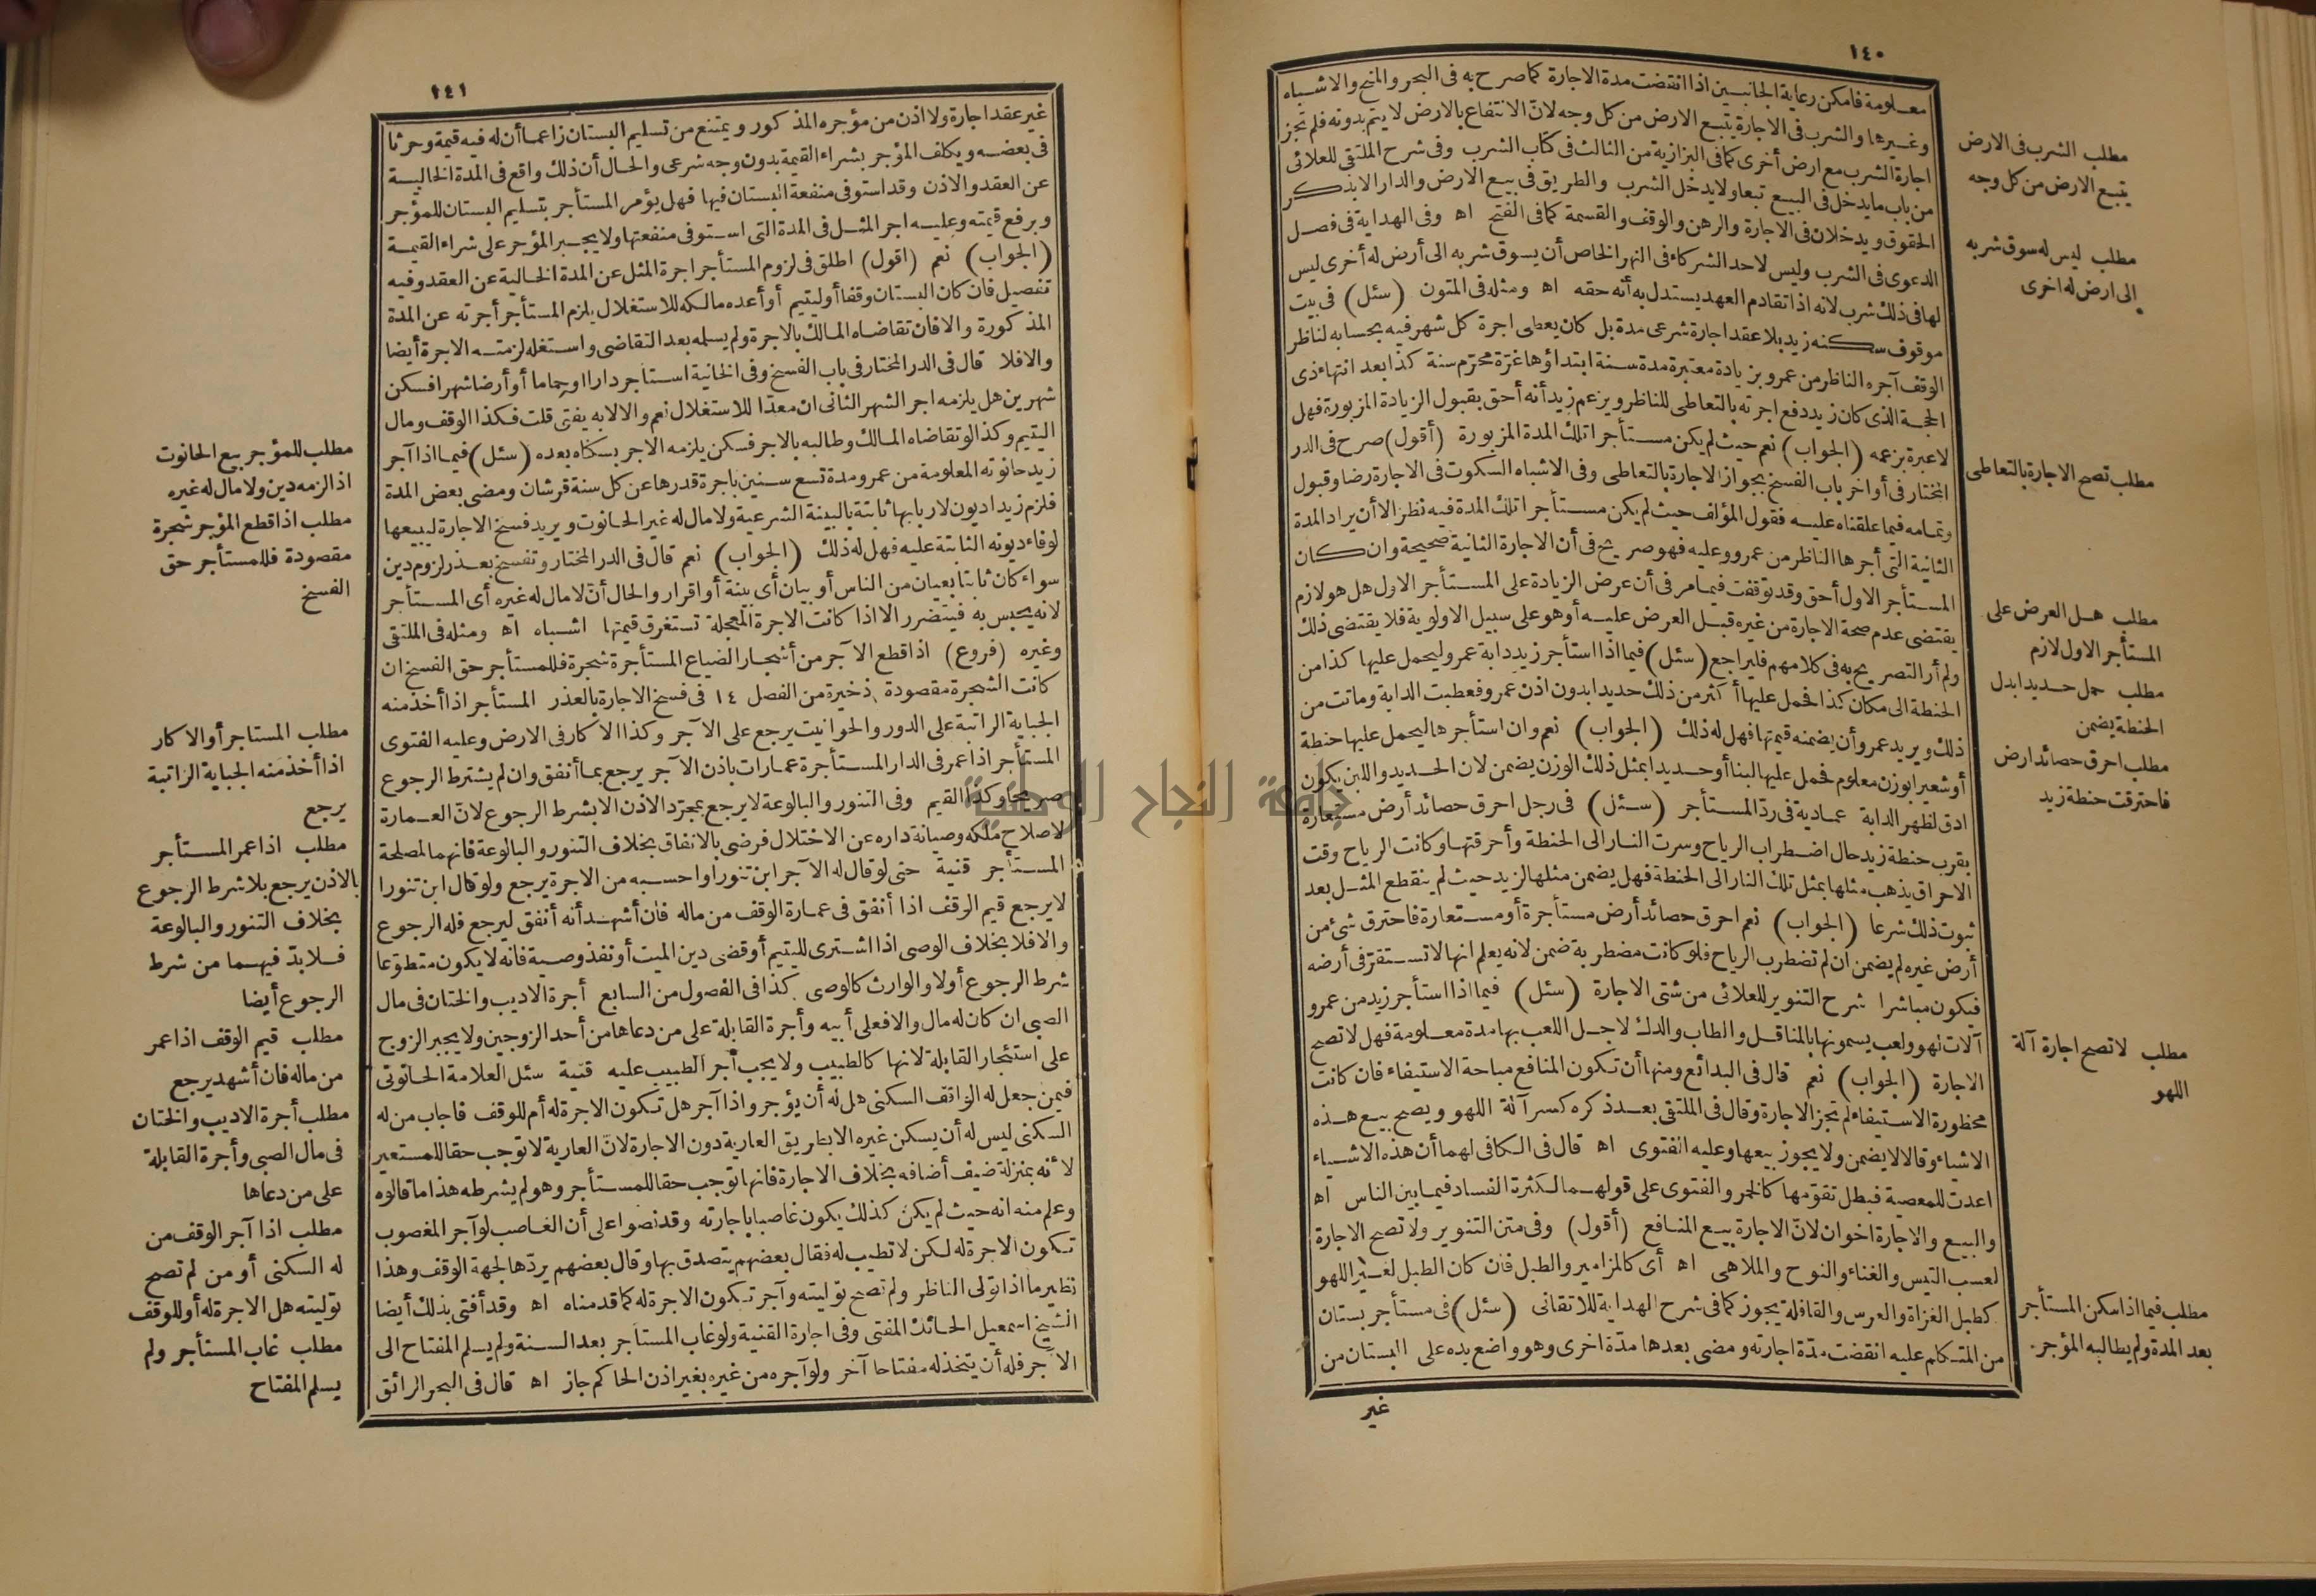 ١٤٠
معلومة فامكن رعاية الجانبين اذا انقضت مدة الاجارة كما صرح به فى البحر والمنح والاشباه
وغيرها والشرب فى الاجارة يتبع الارض من كل وجه لانّ الانتفاع بالارض لا يتم بدونه فلم تجز
اجارة الشرب مع ارض أخرى كما فى البزازية من الثالث فى كتاب الشرب وفى شرح الملتقى للعلائى
من باب ما يدخل فى البيع تبعا ولا يدخل الشرب والطريق فى بيع الارض والدار الا بذكر
الحقوق ويدخلان فى الاجارة والرهن والوقف والقسمة كما فى الفتح اه وفى الهداية فى فصل
الدعوى فى الشرب وليس لاحد الشركاء فى النهر الخاص أن يسوق شربه الى أرض له أخرى ليس
لها فى ذلك شرب لانه اذا تقادم العهد يستدل به أنه حقه اه ومثله فى المتون (سئل) فى بيت
موقوف سكنه زيد بلا عقد اجارة شرعى مدة بل كان يعطى اجرة كل شهر فيه بحسابه لناظر
الوقف آجره الناظر من عمرو بزيادة معتبرة مدة سنة ابتداؤها غرّة محرّم سنة كذا بعد انتهاء ذى
الحجة الذى كان زيد دفع اجرته بالتعاطى للناظر ويزعم زيد أنه أحق بقبول الزيادة المزبورة فهل
لاعبرة بزعمه (الجواب) نعم حيث لم يكن مستأجرا تلك المدة المزبورة (أقول) صرح فى الدر
المختار فى أواخر باب الفسخ بجواز الاجارة بالتعاطى وفى الاشباه السكوت فى الاجارة رضا وقبول
وتمامه فيما علقناه عليه فقول المؤلف حيث لم يكن مستأجرا تلك المدة فيه نظر الا أن يراد المدة
الثانية التى أجرها الناظر من عمرو وعليه فهو صريح فى أن الاجارة الثانية صحيحة وان كان
المستأجر الاول أحق وقد توقفت فيما مر فى أن عرض الزيادة على المستأجر الاول هل هو لازم
يقتضى عدم صحة الاجارة من غيره قبل العرض عليه أو هو على سبيل الاولوية فلا يقتضى ذلك
ولم أر التصريح به فى كلامهم فليراجع (سئل) فيما اذا استأجر زيد دابة عمرو ليحمل عليها كذا من
الحنطة الى مكان كذا فحمل عليها أكثر من ذلك حديدا بدون اذن عمرو فعطبت الدابة وماتت من
ذلك ويريد عمرو أن يضمنه قيمتها فهل له ذلك (الجواب) نعم وان استأجرها ليحمل عليها حنطة
أو شعيرا بوزن معلوم فحمل عليها لبنا أو حديدا بمثل ذلك الوزن يضمن لان الحديد واللبن يكون
ادق لظهر الدابة عمادية فى ردّ المستأجر (سئل) فى رجل احرق حصائد أرض مستعارة
بقرب حنطة زيد حال اضطراب الرياح وسرت النار الى الحنطة وأحرقتها وكانت الرياح وقت
الاحراق يذهب مثلها بمثل تلك النار الى الحنطة فهل يضمن مثلها لزيد حيث لم ينقطع المثل بعد
ثبوت ذلك شرعا (الجواب) نعم احرق حصائد أرض مستأجرة أو مستعارة فاحترق شئ من
أرض غيره لم يضمن ان لم تضطرب الرياح فلو كانت مضطربة ضمن لانه يعلم انها لا تستقرّ فى أرضه
فيكون مباشرا شرح التنوير للعلائى من شتى الاجارة (سئل) فيما اذا استأجر زيد من عمرو
آلات لهو ولعب يسمونها بالمناقل والطاب والدك لاجل اللعب بها مدة معلومة فهل لا تصح
الاجارة (الجواب) نعم قال فى البدائع ومنها أن تكون المنافع مباحة الاستيفاء فان كانت
محظورة الاستيفاء لم تجز الاجارة وقال فى الملتقى بعد ذكره كسر آلة اللهو ويصح بيع هذه
الاشياء وقالا لا يضمن ولا يجوز بيعها وعليه الفتوى اه قال فى الكافى لهما أن هذه الاشياء
اعدت للمعصية فبطل تقوّمها كالخمر والفتوى على قولهما لكثرة الفساد فيما بين الناس اه
والبيع والاجارة اخوان لانّ الاجارة بيع المنافع (أقول) وفى متن التنوير ولا تصح الاجارة
لعسب التيس والغناء والنوح والملاهى اه أى كالمزامير والطبل فان كان الطبل لغير اللهو
كطبل الغزاة والعرس والقافلة يجوز كما فى شرح الهداية للاتقانى (سئل) فى مستأجر بستان
من المتكلم عليه انقضت مدّة اجارته ومضى بعدها مدّة اخرى وهو واضع يده على البستان من
غير
مطلب الشرب فى الارض
يتبع الارض من كل وجه
مطلب ليس له سوق شربه
الى ارض له اخرى
مطلب تصح الاجارة بالتعاطى
مطلب هل العرض على
المستأجر الاول لازم
مطلب حمل حديدا بدل
الحنطة يضمن
مطلب احرق حصائد ارض
فاحترقت حنطة زيد
مطلب لا تصح اجارة آلة
اللهو
مطلب فيما اذا سكن المستأجر
بعد المدة ولم يطالبه المؤجر
١٤١
غير عقد اجارة ولا اذن من مؤجره المذكور ويمتنع من تسليم البستان زاعما أن له فيه قيمة وحرثا
فى بعضه ويكلف المؤجر بشراء القيمة بدون وجه شرعى والحال أن ذلك واقع فى المدة الخالية
عن العقد والاذن وقد استوفى منفعة البستان فيها فهل يؤمر المستأجر بتسليم البستان للمؤجر
وبرفع قيمته وعليه اجر المثل فى المدة التى استوفى منفعتها ولا يجبر المؤجر على شراء القيمة
(الجواب) نعم (اقول) اطلق فى لزوم المستأجر اجرة المثل عن المدة الخالية عن العقد وفيه
تفصيل فان كان البستان وقفا أو ليتيم أو أعده مالكه للاستغلال يلزم المستأجر أجرته عن المدة
المذكورة والا فان تقاضاه المالك بالاجرة ولم يسلمه بعد التقاضى واستغله لزمته الاجرة أيضا
والا فلا قال فى الدر المختار فى باب الفسخ وفى الخانية استأجر دارا او حماما أو أرضا شهرا فسكن
شهرين هل يلزمه اجر الشهر الثانى ان معدّا للاستغلال نعم والا لا به يفتى قلت فكذا الوقف ومال
اليتيم وكذا لو تقاضاه المالك وطالبه بالاجر فسكن يلزمه الاجر بسكناه بعده (سئل) فيما اذا آجر
زيد حانوته المعلومة من عمرو مدة تسع سنين باجرة قدرها عن كل سنة قرشان ومضى بعض المدة
فلزم زيدا ديون لاربابها ثابتة بالبينة الشرعية ولا مال له غير الحانوت ويريد فسخ الاجارة ليبيعها
لوفاء ديونه الثابتة عليه فهل له ذلك (الجواب) نعم قال فى الدر المختار وتفسخ بعذر لزوم دين
سواء كان ثابتا بعيان من الناس أو بيان أى بينة أو اقرار والحال أنّ لا مال له غيره أى المستأجر
لانه يحبس به فيتضرر الا اذا كانت الاجرة المعجلة تستغرق قيمتها اشباه اه ومثله فى الملتقى
وغيره (فروع) اذا قطع الآجر من أشجار الضياع المستأجرة شجرة فللمستأجر حق الفسخ ان
كانت الشجرة مقصودة ذخيرة من الفصل ١٤ فى فسخ الاجارة بالعذر المستأجر اذا أخذ منه
الجباية الراتبة على الدور والحوانيت يرجع على الآجر وكذا الاكار فى الارض وعليه الفتوى
المستأجر اذا عمر فى الدار المستأجرة عمارات باذن الآجر يرجع بما أنفق وان لم يشترط الرجوع
صريحا وكذا القيم وفى التنور والبالوعة لا يرجع بمجرّد الاذن الا بشرط الرجوع لانّ العمارة
لاصلاح ملكه وصيانة داره عن الاختلال فرضى بالانفاق بخلاف التنور والبالوعة فانهما لمصلحة
المستأجر قنية حتى لو قال له الآجر ابن تنورا واحسبه من الاجرة يرجع ولو قال ابن تنورا
لا يرجع قيم الوقف اذا أنفق فى عمارة الوقف من ماله فان أشهد أنه أنفق ليرجع فله الرجوع
والا فلا بخلاف الوصى اذا اشترى لليتيم أو قضى دين الميت أو نفذ وصية فانه لا يكون متطوّعا
شرط الرجوع أولا والوارث كالوصى كذا فى الفصول من السابع أجرة الاديب والختان فى مال
الصبى ان كان له مال والا فعلى أبيه وأجرة القابلة على من دعاها من أحد الزوجين ولا يجبر الزوج
على استئجار القابلة لانها كالطبيب ولا يجب أجر الطبيب عليه قنية سئل العلامة الحانوتى
فيمن جعل له الواقف السكنى هل له أن يؤجر واذا آجر هل تكون الاجرة له أم للوقف فاجاب من له
السكنى ليس له أن يسكن غيره الا بطريق العارية دون الاجارة لانّ العارية لا توجب حقا للمستعير
لانه بمنزلة ضيف أضافه بخلاف الاجارة فانها توجب حقا للمستأجر وهو لم يشرطه هذا ما قالوه
وعلم منه انه حيث لم يكن كذلك يكون غاصبا باجارته وقد نصوا على أن الغاصب لو آجر المغصوب
تكون الاجرة له لكن لا تطيب له فقال بعضهم يتصدق بها وقال بعضهم يردّها لجهة الوقف وهذا
نظير ما اذا تولى الناظر ولم تصح توليته وآجر تكون الاجرة له كما قدمناه اه وقد أفتى بذلك أيضا
الشيخ اسمعيل الحائك المفتى وفى اجارة القنية ولو غاب المستأجر بعد السنة ولم يسلم المفتاح الى
الآجر فله أن يتخذ له مفتاحا آخر ولو آجره من غيره بغير اذن الحاكم جاز اه قال فى البحر الرائق
مطلب للمؤجر بيع الحانوت
اذا لزمه دين ولا مال له غيره
مطلب اذا قطع المؤجر شجرة
مقصودة فللمستأجر حق
الفسخ
مطلب المستاجر أو الاكار
اذا أخذ منه الجباية الراتبة
يرجع
مطلب اذا عمر المستأجر
بالاذن يرجع بلا شرط الرجوع
بخلاف التنور والبالوعة
فلا بدّ فيهما من شرط
الرجوع أيضا
مطلب قيم الوقف اذا عمر
من ماله فان أشهد يرجع
مطلب أجرة الاديب والختان
فى مال الصبى وأجرة القابلة
على من دعاها
مطلب اذا آجر الوقف من
له السكنى أو من لم تصح
توليته هل الاجرة له أو للوقف
مطلب غاب المستأجر ولم
يسلم المفتاح
جامعة النجاح الوطنية